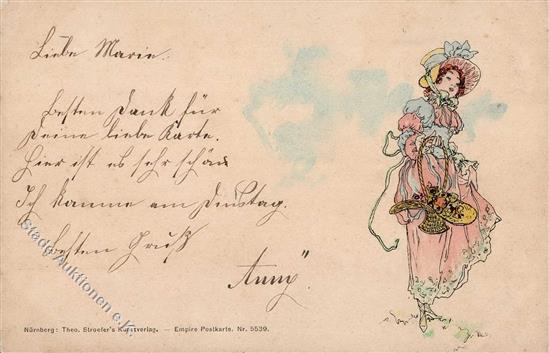 Liebe Marie.
Besten Dank für
Deine liebe Karte.
Hier ist es sehr schön
Ich komme am Dienstag.
Besten Gruß
Anny"
Nürnberg: Theo. Stroefer's Kunstverlag. — Empire Postkarte. Nr. 5539.
Stade Auktionen e.K.